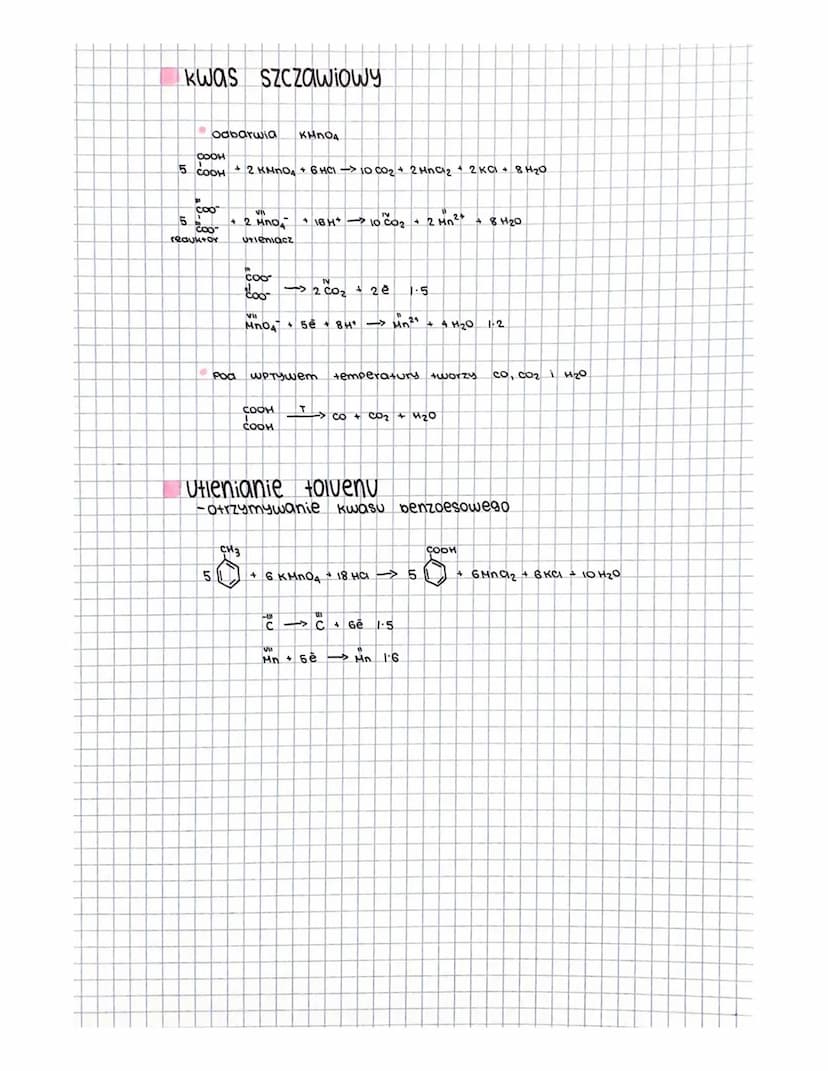 kwas szczawiowy
odbarwia KMnO4
COOH
5 COOH + 2 KMnO4 + 6 HCl → 10 CO2 + 2 MnCl2 + 2 KCl + 8 H2O
III
COO⁻ VII IV II
5 COO⁻ + 2 MnO4⁻ + 16H⁺ → 10 CO2 + 2 Mn²⁺ + 8 H2O
III
reduktor utleniacz
III
COO⁻ IV
COO⁻ → 2 CO2 + 2ē |·5
III
VII II
MnO4⁻ + 5ē + 8H⁺ → Mn²⁺ + 4 H2O |·2
Pod wpływem temperatury tworzy CO, CO2 i H2O
COOH T
COOH → CO + CO2 + H2O
Utlenianie toluenu
- otrzymywanie kwasu benzoesowego
CH3 COOH
5 + 6 KMnO4 + 18 HCl → 5 + 6 MnCl2 + 6 KCl + 10 H2O
-III III
C → C + 6ē |·5
VII II
Mn + 5ē → Mn |·6